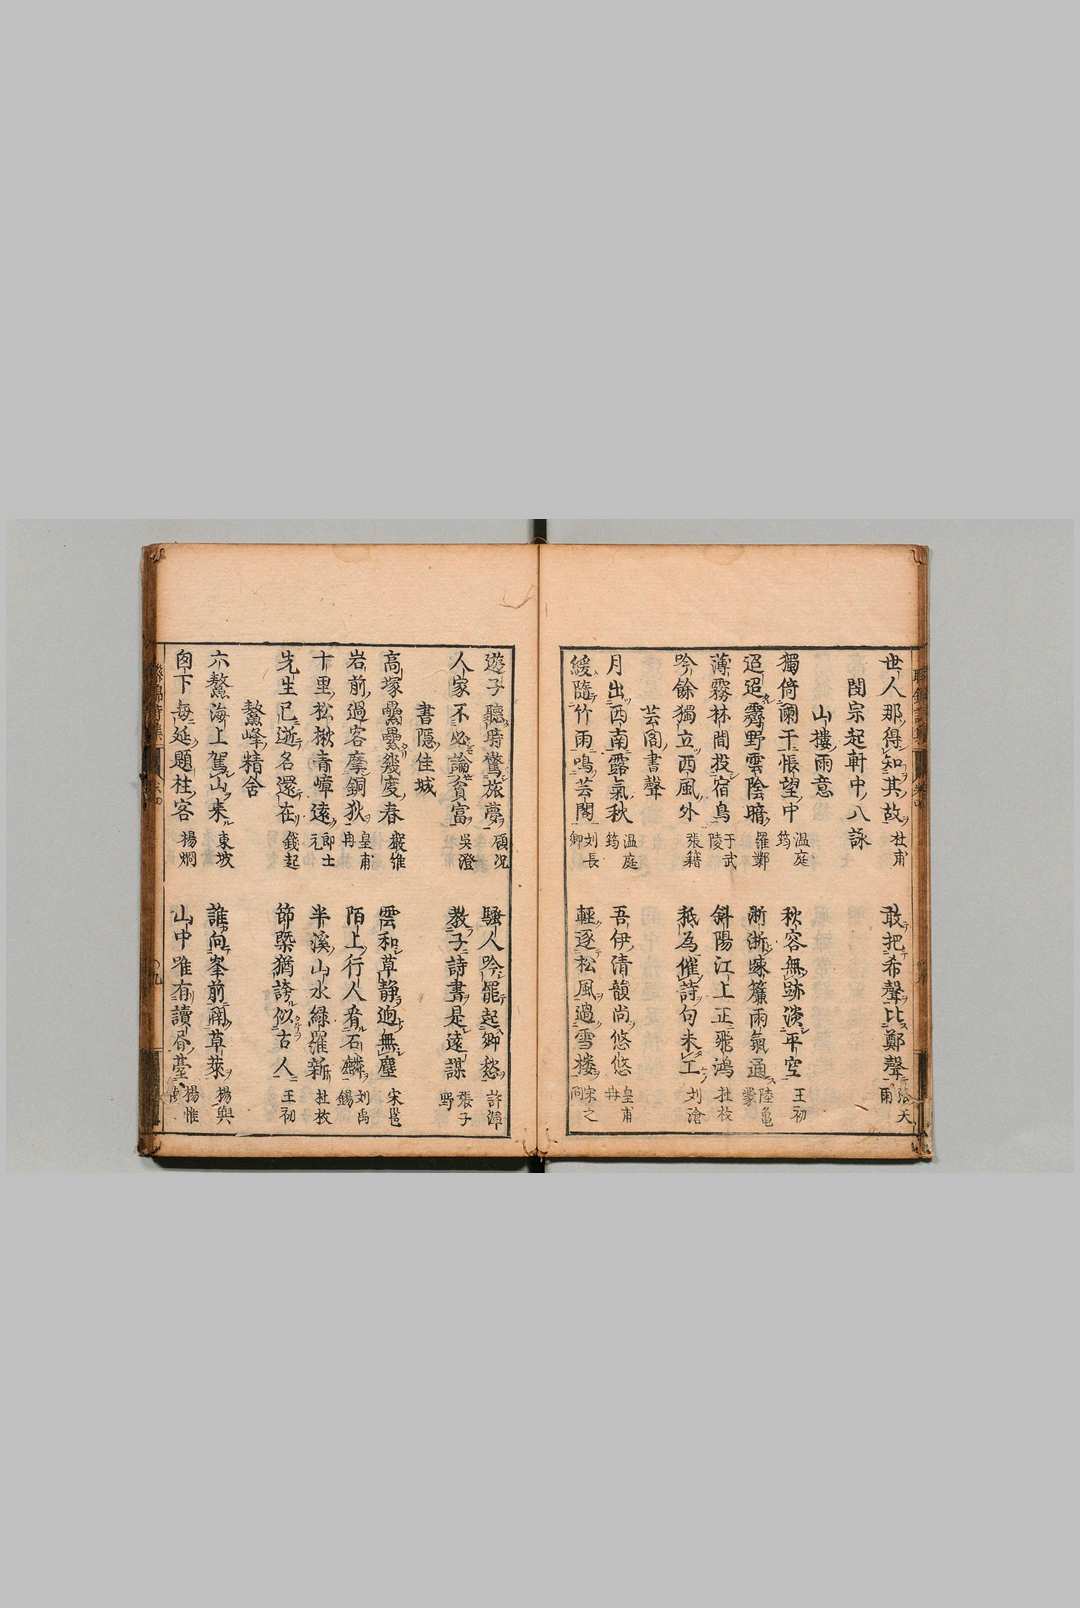 世人那得知其故 杜甫 敢把希聲比鄭聲
閔宗起軒中八詠
山樓雨意
獨倚闌干悵望中 温庭筠 秋容無跡淡平空 王初
迢迢霽野雲陰暗 羅鄴 漸漸疎簾雨氣通 陸龜蒙
薄霧林間投宿鳥 于武陵 斜陽江上正飛鴻 杜枚
吟餘獨立西風外 張籍 秖為催詩句未工 刘滄
芸閣書聲
月出西南露氣秋 温庭筠 吾伊清韻尚悠悠 皇甫冉
緩隨竹雨鳴芸閣 刘長卿 輕逐松風過雪楼 宋之問
遊子聽時驚旅夢 頋况 騷人吟罷起鄉愁 許渾
人家不必論貧富 吳澄 教子詩書是遠謀 張子野
書隱佳城
高塚纍纍幾度春 嚴維 雲和草静逈無塵 宋邕
岩前過客摩銅狄 皇甫冉 陌上行人肴石麟 刘禹錫
十里松楸青嶂遠 郎士元 半溪山水綠羅新 杜枚
先生已逝名還在 錢起 節槩猶誇似古人 王初
鰲峰精舍
六鰲海上駕山來 東坡 誰向峯前闢草萊 揚與
囱下每延題柱客 揚炯 山中唯有讀